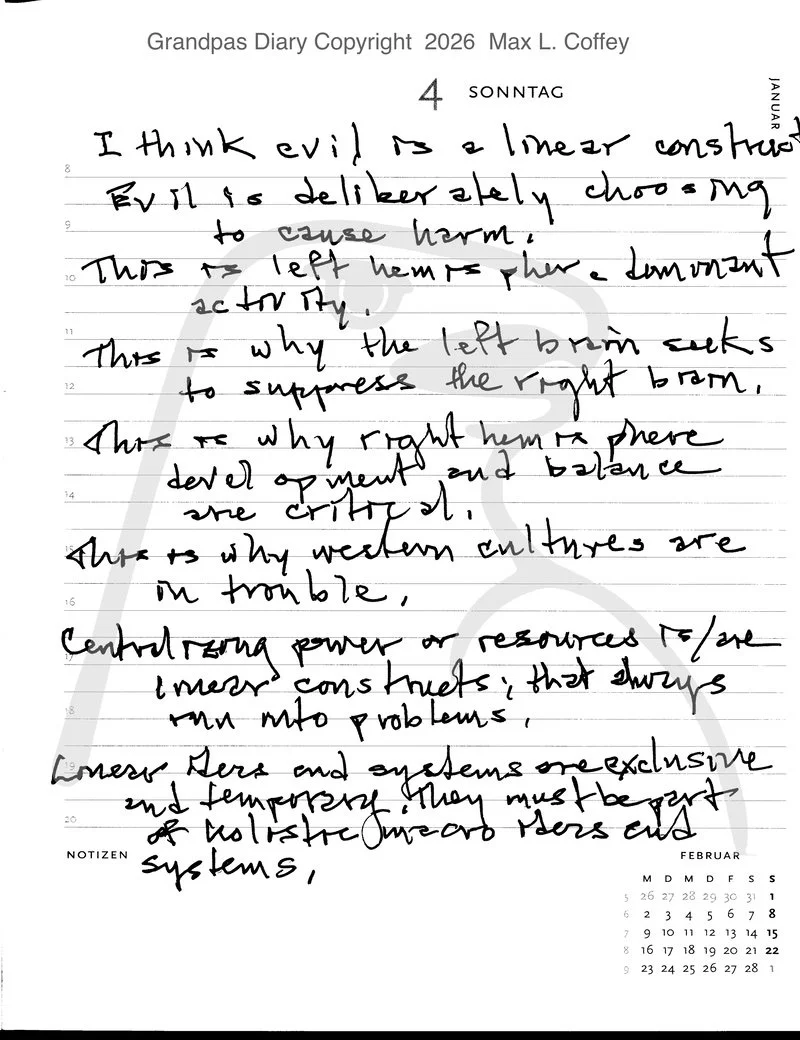 Grandpas Diary Copyright 2026 Max L. Coffey
4 SONNTAG
JANUAR
I think evil is a linear construct
8
Evil is deliberately choosing
9
to cause harm.
10
This is left hemisphere dominant
activity.
11
This is why the left brain seeks
12
to suppress the right brain.
13
This is why right hemisphere
development and balance
14
are critical.
15
This is why western cultures are
in trouble.
16
Centralizing power or resources is/are
17
linear constructs; that always
18
run into problems.
19
Linear ideas and systems are exclusive
and temporary. They must be part
20
of holistic macro ideas and
NOTIZEN
systems.
FEBRUAR
M D M D F S S
5 26 27 28 29 30 31 1
6 2 3 4 5 6 7 8
7 9 10 11 12 13 14 15
8 16 17 18 19 20 21 22
9 23 24 25 26 27 28 1